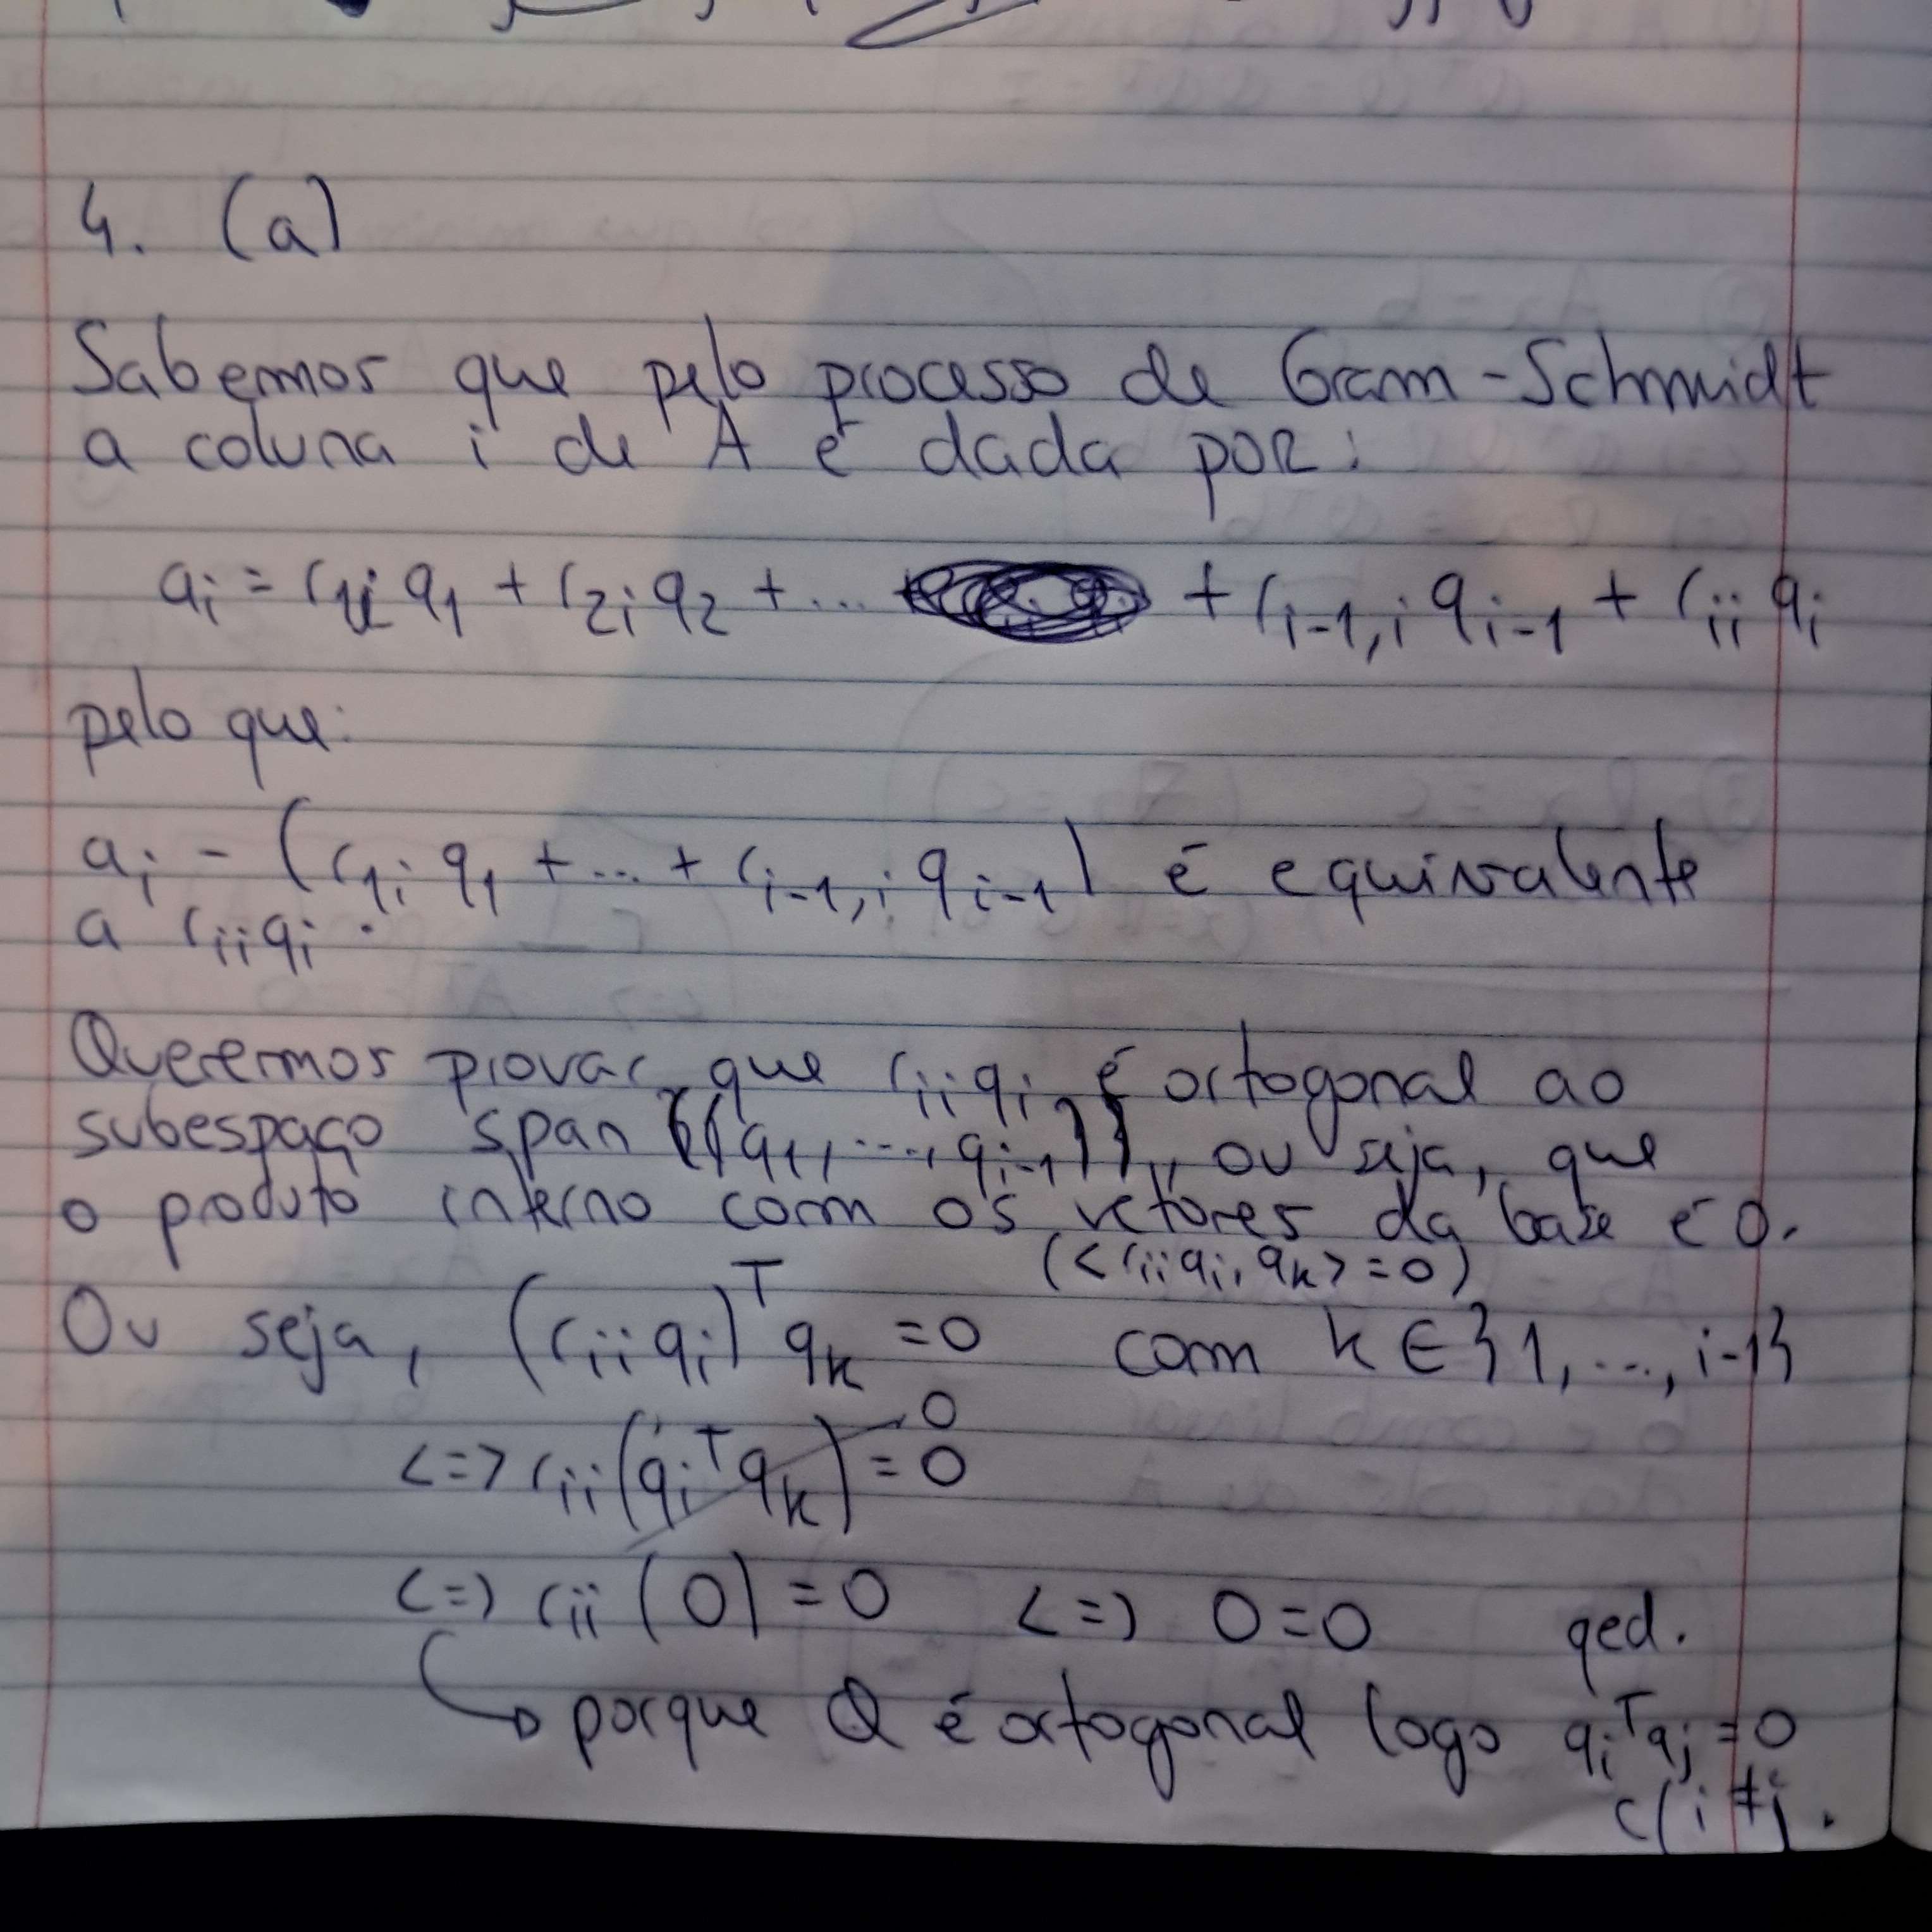 4. (a)
Sabemos que pelo processo de Gram-Schmidt
a coluna i de A é dada por:
aᵢ = r₁ᵢ q₁ + r₂ᵢ q₂ + ... + rᵢ₋₁,ᵢ qᵢ₋₁ + rᵢᵢ qᵢ
pelo que:
aᵢ - (r₁ᵢ q₁ + ... + rᵢ₋₁,ᵢ qᵢ₋₁) é equivalente
a rᵢᵢqᵢ.
Queremos provar que rᵢᵢqᵢ é ortogonal ao
subespaço span {{q₁, ..., qᵢ₋₁}}, ou seja, que
o produto interno com os vetores da base é 0.
(<rᵢᵢqᵢ, qₖ> = 0)
Ou seja, (rᵢᵢqᵢ)ᵀ qₖ = 0 com k ∈ }1, ..., i-1}
0
<=> rᵢᵢ(qᵢᵀqₖ) = 0
<=> rᵢᵢ (0) = 0 <=> 0 = 0 qed.
→ porque Q é ortogonal logo qᵢᵀqⱼ = 0
c/ i ≠ j.